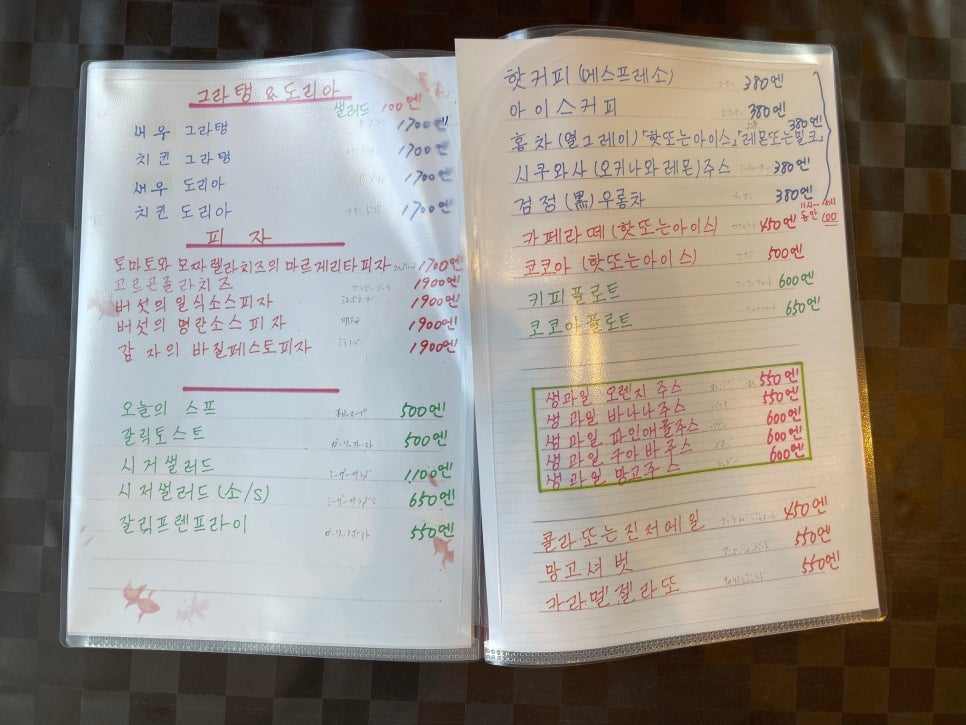 그라탱 & 도리아
샐러드 100엔
새우 그라탱 1700엔
치킨 그라탱 1700엔
새우 도리아 1700엔
치킨 도리아 1700엔
피 자
토마토와 모짜렐라치즈의 마르게리타피자 1700엔
고르곤졸라치즈 1900엔
버섯의 일식소스피자 1900엔
버섯의 명란소스피자 1900엔
감자의 바질페스토피자 1900엔
오늘의 스프 500엔
갈릭토스트 500엔
시저샐러드 1,100엔
시저샐러드(소/S) 650엔
갈릭프렌프라이 550엔
핫커피 (에스프레소) 380엔
아이스커피 380엔
홍차(얼그레이)「핫또는아이스」「레몬또는밀크」 380엔
시쿠와사 (오키나와레몬)주스 380엔
검정(黒)우롱차 380엔
카페라떼 (핫또는아이스) 450엔
코코아 (핫또는아이스) 500엔
키피플로트 600엔
코코아플로트 650엔
생과일 오렌지 주스 550엔
생과일 바나나주스 550엔
생과일 파인애플주스 600엔
생과일 구아바주스 600엔
생과일 망고주스 600엔
콜라또는진저에일 450엔
망고셔벗 550엔
카라멜젤라또 550엔